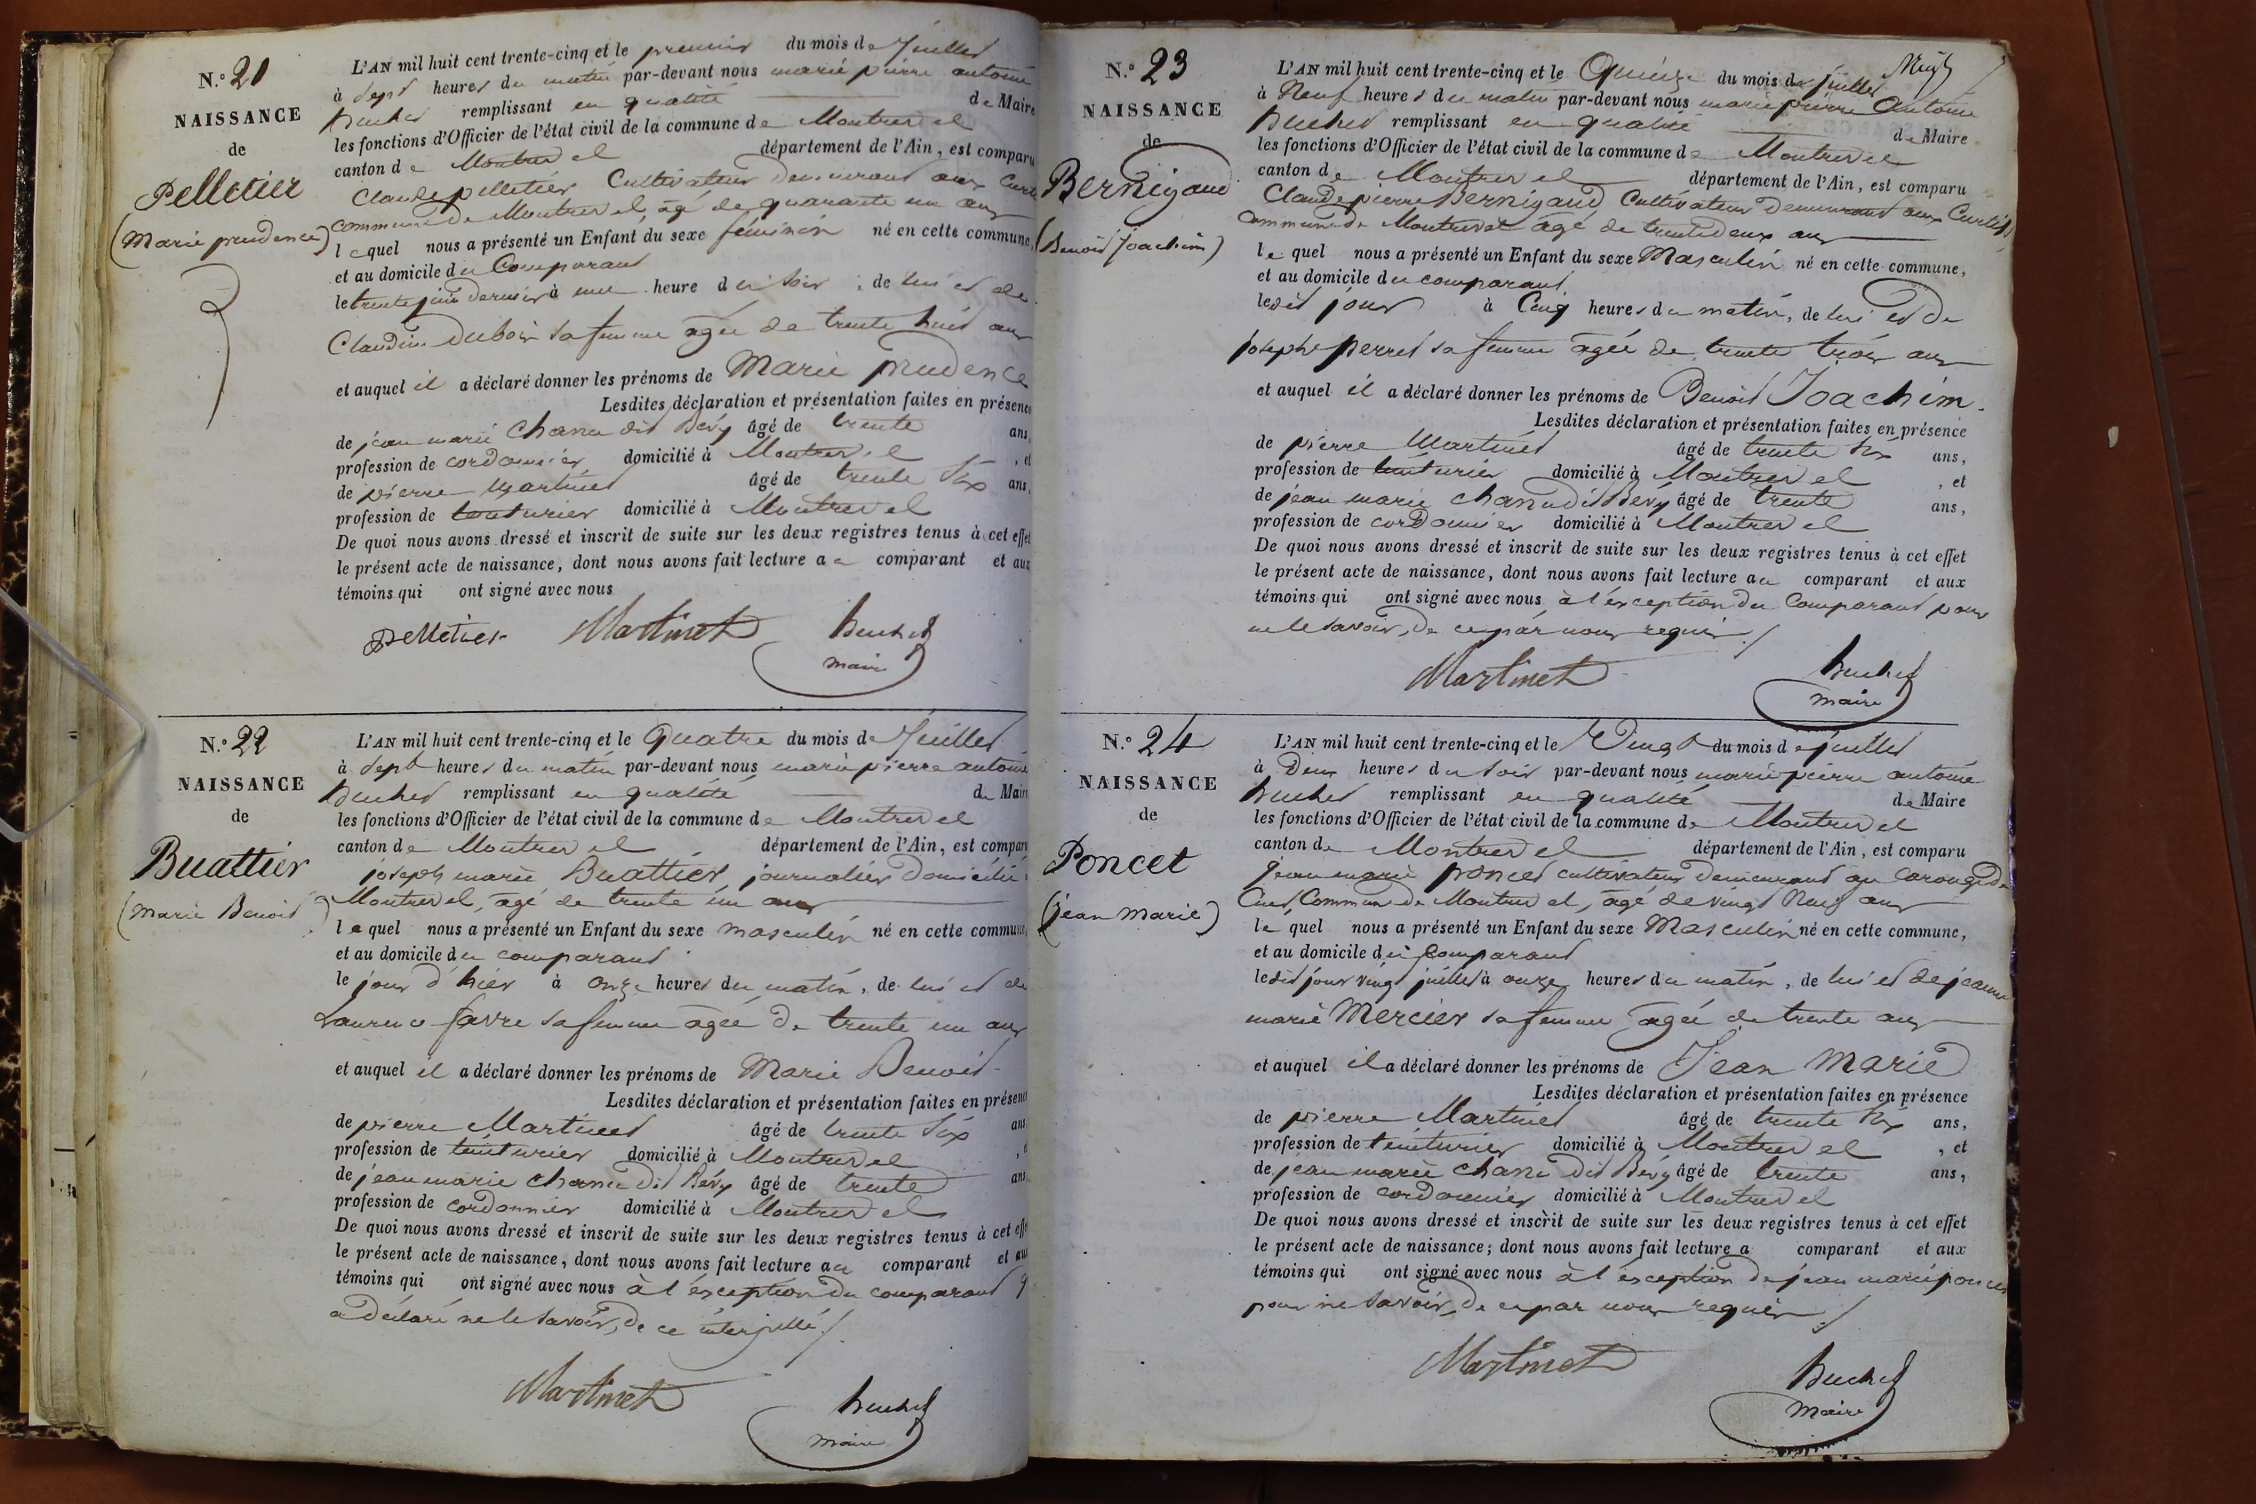 N.° 21
NAISSANCE
de
Pelletier
(Marie prudence)
L'AN mil huit cent trente-cinq et le premier du mois de Juillet
à Sept heures du matin par-devant nous marie pierre antoine
buchet remplissant en qualité de Maire
les fonctions d'Officier de l'état civil de la commune de Montrevel
canton de Montrevel département de l'Ain, est comparu
Claude pelletier Cultivateur Demeurant aux Curtis
commune de Montrevel, agé de quarante un ans
lequel nous a présenté un Enfant du sexe féminin né en cette commune,
et au domicile du Comparant
le trente juin dernier à une heure du soir, de lui et de
Claudine Dubois sa femme agée de trente huit ans
et auquel il a déclaré donner les prénoms de Marie prudence
Lesdites déclaration et présentation faites en présence
de jean marie Chanu dit Bévy âgé de trente ans,
profession de cordonnier domicilié à Montrevel, et
de pierre Martinet âgé de trente six ans,
profession de teinturier domicilié à Montrevel
De quoi nous avons dressé et inscrit de suite sur les deux registres tenus à cet effet
le présent acte de naissance, dont nous avons fait lecture au comparant et aux
témoins qui ont signé avec nous
pelletier Martinet buchet
maire
N.° 22
NAISSANCE
de
Buattier
(Marie Benoit)
L'AN mil huit cent trente-cinq et le Quatre du mois de Juillet
à Sept heures du matin par-devant nous marie pierre antoine
buchet remplissant en qualité de Maire
les fonctions d'Officier de l'état civil de la commune de Montrevel
canton de Montrevel département de l'Ain, est comparu
joseph marie Buattier, journalier Domicilié à
Montrevel, agé de trente un ans
lequel nous a présenté un Enfant du sexe masculin né en cette commune,
et au domicile du comparant
le jour d'hier à onze heures du matin, de lui et de
Laurence favre sa femme agée de trente un ans
et auquel il a déclaré donner les prénoms de Marie Benoit
Lesdites déclaration et présentation faites en présence
de pierre Martinet âgé de trente six ans
profession de teinturier domicilié à Montrevel, et
de jean marie Chanu Dit Bévy âgé de trente ans,
profession de cordonnier domicilié à Montrevel
De quoi nous avons dressé et inscrit de suite sur les deux registres tenus à cet effet
le présent acte de naissance, dont nous avons fait lecture au comparant et aux
témoins qui ont signé avec nous à l'exception du comparant q
a déclaré ne le savoir, de ce interpellé ./.
Martinet buchet
maire
N.° 23
NAISSANCE
de
Bernigaud
(Benoit Joachim)
L'AN mil huit cent trente-cinq et le Quinze du mois de juillet
à Neuf heures du matin par-devant nous marie pierre Antoine
buchet remplissant en qualité de Maire
les fonctions d'Officier de l'état civil de la commune de Montrevel
canton de Montrevel département de l'Ain, est comparu
Claude pierre Bernigaud Cultivateur Demeurant aux Curtis,
Commune de Montrevel agé de trente deux ans
le quel nous a présenté un Enfant du sexe Masculin né en cette commune,
et au domicile du comparant
ledit jour à Cinq heures du matin, de lui et de
josephe perret sa femme agée de trente trois ans
et auquel il a déclaré donner les prénoms de Benoit Joachim.
Lesdites déclaration et présentation faites en présence
de pierre Martinet âgé de trente six ans,
profession de teinturier domicilié à Montrevel, et
de jean marie chanu dit Bevy âgé de trente ans,
profession de cordonnier domicilié à Montrevel
De quoi nous avons dressé et inscrit de suite sur les deux registres tenus à cet effet
le présent acte de naissance, dont nous avons fait lecture au comparant et aux
témoins qui ont signé avec nous à l'exception du Comparant pour
ne le savoir, de ce par nous requis ./
Martinet buchet
maire
N.° 24
NAISSANCE
de
Poncet
(jean Marie)
L'AN mil huit cent trente-cinq et le Vingt du mois de juillet
à Deux heures du soir par-devant nous marie pierre antoine
buchet remplissant en qualité de Maire
les fonctions d'Officier de l'état civil de la commune de Montrevel
canton de Montrevel département de l'Ain, est comparu
jean marie poncet cultivateur demeurant au Carouge de
Cuet, Commune de Montrevel, agé de vingt Neuf ans
le quel nous a présenté un Enfant du sexe Masculin né en cette commune,
et au domicile du Comparant
ledit jour vingt juillet à onze heures du matin, de lui et de jeanne
marie Mercier sa femme agée de trente ans
et auquel il a déclaré donner les prénoms de Jean Marie
Lesdites déclaration et présentation faites en présence
de pierre Martinet âgé de trente six ans,
profession de teinturier domicilié à Montrevel, et
de jean marie chanu Dit Bévy âgé de trente ans,
profession de cordonnier domicilié à Montrevel
De quoi nous avons dressé et inscrit de suite sur les deux registres tenus à cet effet
le présent acte de naissance; dont nous avons fait lecture a comparant et aux
témoins qui ont signé avec nous à l'exception de jean marie poncet
pour ne savoir, de ce par nous requis ./
Martinet buchet
Maire